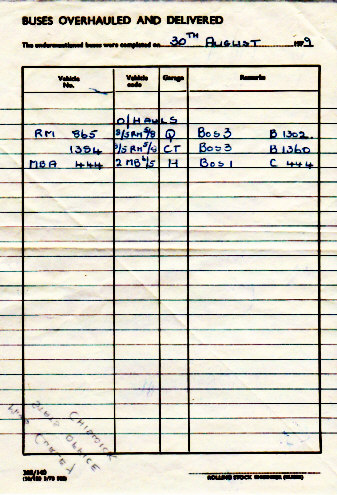 BUSES OVERHAULED AND DELIVERED
The undermentioned buses were completed on 30TH AUGUST 1979
Vehicle No. Vehicle code Garage Remarks
O/HAULS
RM 865 Q BOS 3 B 1302.
1384 CT BOS 3 B 1360
MBA 444 H BOS 1 C 444
CHISWICK
OFFICE
ROLLING STOCK ENGINEER